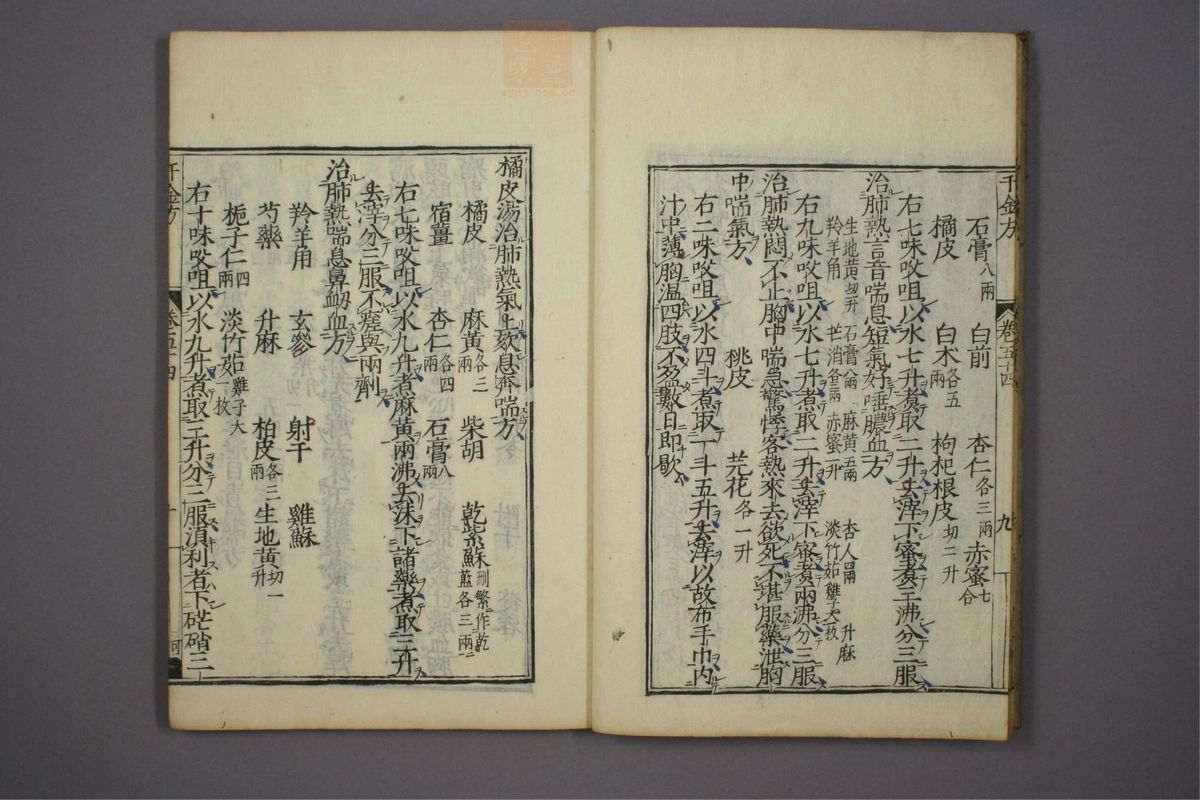 千金方 卷五十四 九
石膏八兩 白前 杏仁各三兩 赤蜜七合
橘皮 白术各五兩 枸杞根皮切二升
右七味㕮咀以水七升煮取二升去滓下蜜煮三沸分三服
治肺熱言音喘息短氣好唾膿血方
生地黄切升 石膏八兩 麻黄五兩 杏人四兩 升麻
羚羊角 芒消各三兩 赤蜜一升 淡竹茹雞子大一枚
右九味㕮咀以水七升煮取二升去滓下蜜煮兩沸分三服
治肺熱悶不止胸中喘急驚悸客熱來去欲死不堪服藥泄胸
中喘氣方
桃皮 芫花各一升
右二味㕮咀以水四斗煮取一斗五升去滓以故布手巾内
汁中薄胸温四肢不盈數日即歇
橘皮湯治肺熱氣上欬息奔喘方
橘皮 麻黄各三兩 柴胡 乾紫蘇刪繁作乾藍各三兩
宿薑 杏仁各四兩 石膏八兩
右七味㕮咀以水九升煮麻黄兩沸去沫下諸藥煮取三升
去滓分三服不瘥與兩劑
治肺熱喘息鼻衂血方
羚羊角 玄參 射干 雞蘇
芍藥 升麻 柏皮各三兩 生地黄切一升
梔子仁四兩 淡竹茹雞子大一枚
右十味㕮咀以水九升煮取三升分三服須利者下芒硝三
千金方 卷五十四 十